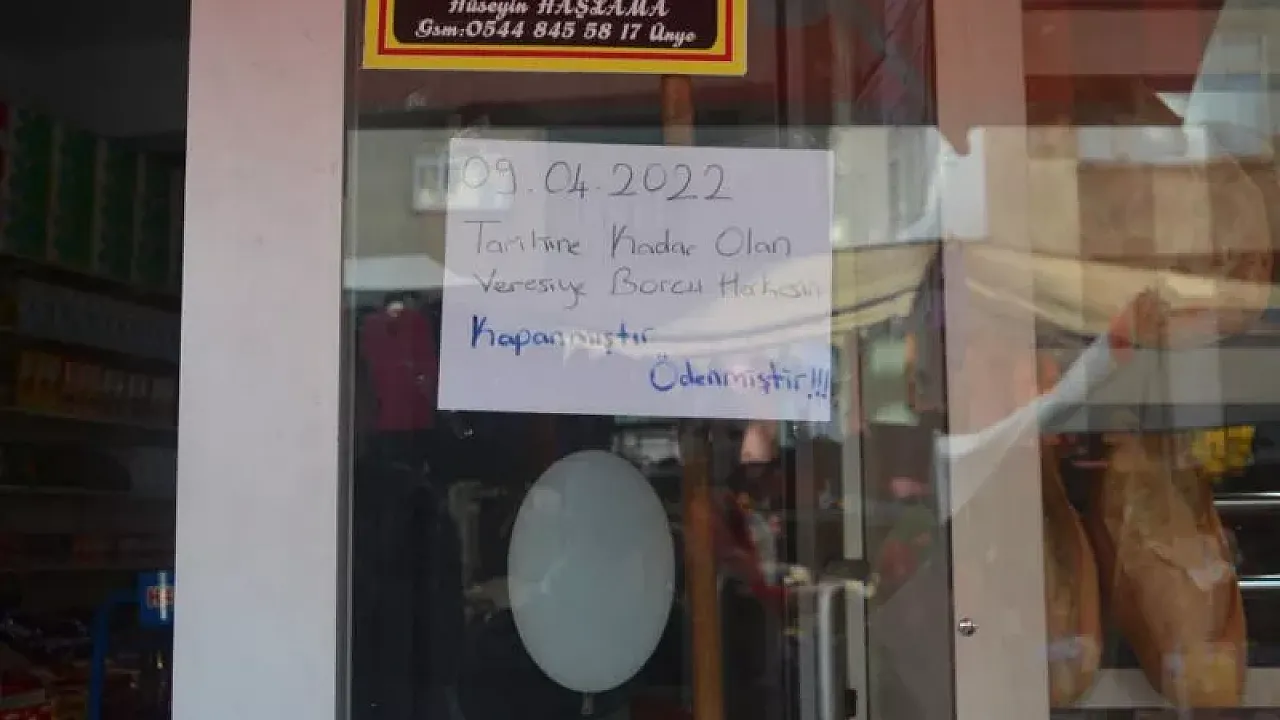 Hüseyin HAŞLAMA
Gsm:0544 845 58 17 Ünye
09.04.2022
Tarihine Kadar Olan
Veresiye Borcu Herkesin
Kapanmıştır
Ödenmiştir!!!